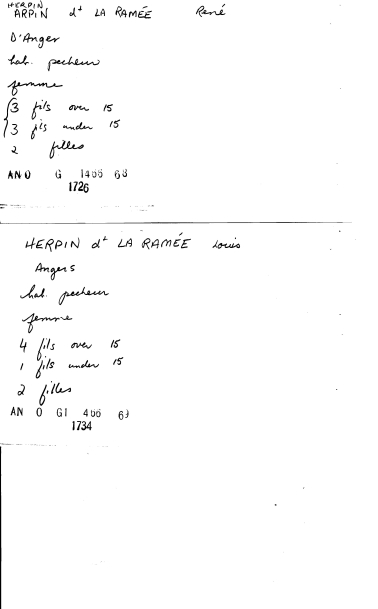 HERPIN
ARPIN dt LA RAMÉE René
D'Anger
hab. pecheur
femme
3 fils over 15
3 fils under 15
2 filles
AN O G 1466 68
1726
HERPIN dt LA RAMÉE Louis
Angers
hab. pecheur
femme
4 fils over 15
1 fils under 15
2 filles
AN O G1 466 69
1734